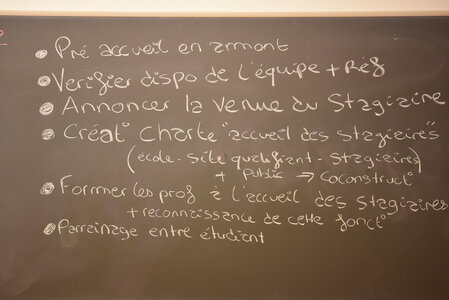 • Pré accueil en amont
• Verifier dispo de l'équipe + Réf
• Annoncer la venue du Stagiaire
• Créat° Charte "accueil des stagiaires"
(école - site qualifiant - Stagiaires)
+ Public => Coconstruct°
• Former les prof à l'accueil des stagiaires
+ reconnaissance de cette fonct°
• Parrainage entre étudiant